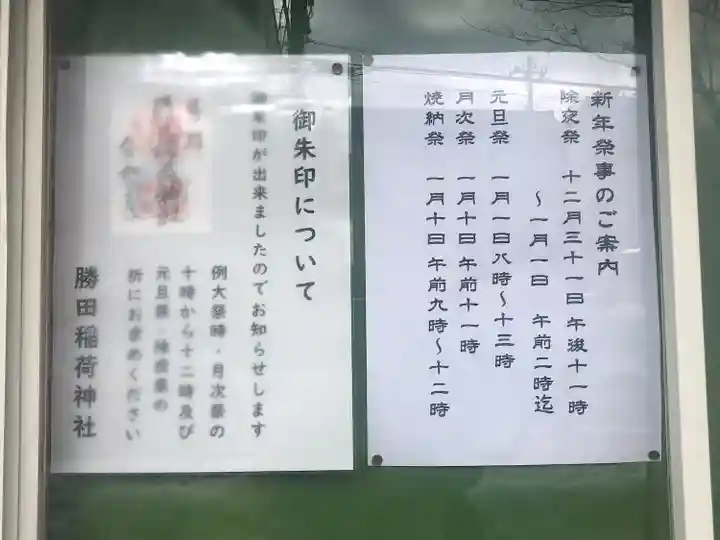 新年祭事のご案内
除夜祭 十二月三十一日午後十一時
～一月一日 午前二時迄
元旦祭 一月一日八時～十三時
月次祭 一月十日午前十一時
焼納祭 一月十日午前九時～十二時
御朱印について
御朱印が出来ましたのでお知らせします
例大祭時・月次祭の
十時から十二時及び
元旦祭・除夜祭の
折にお求めください
勝田稲荷神社